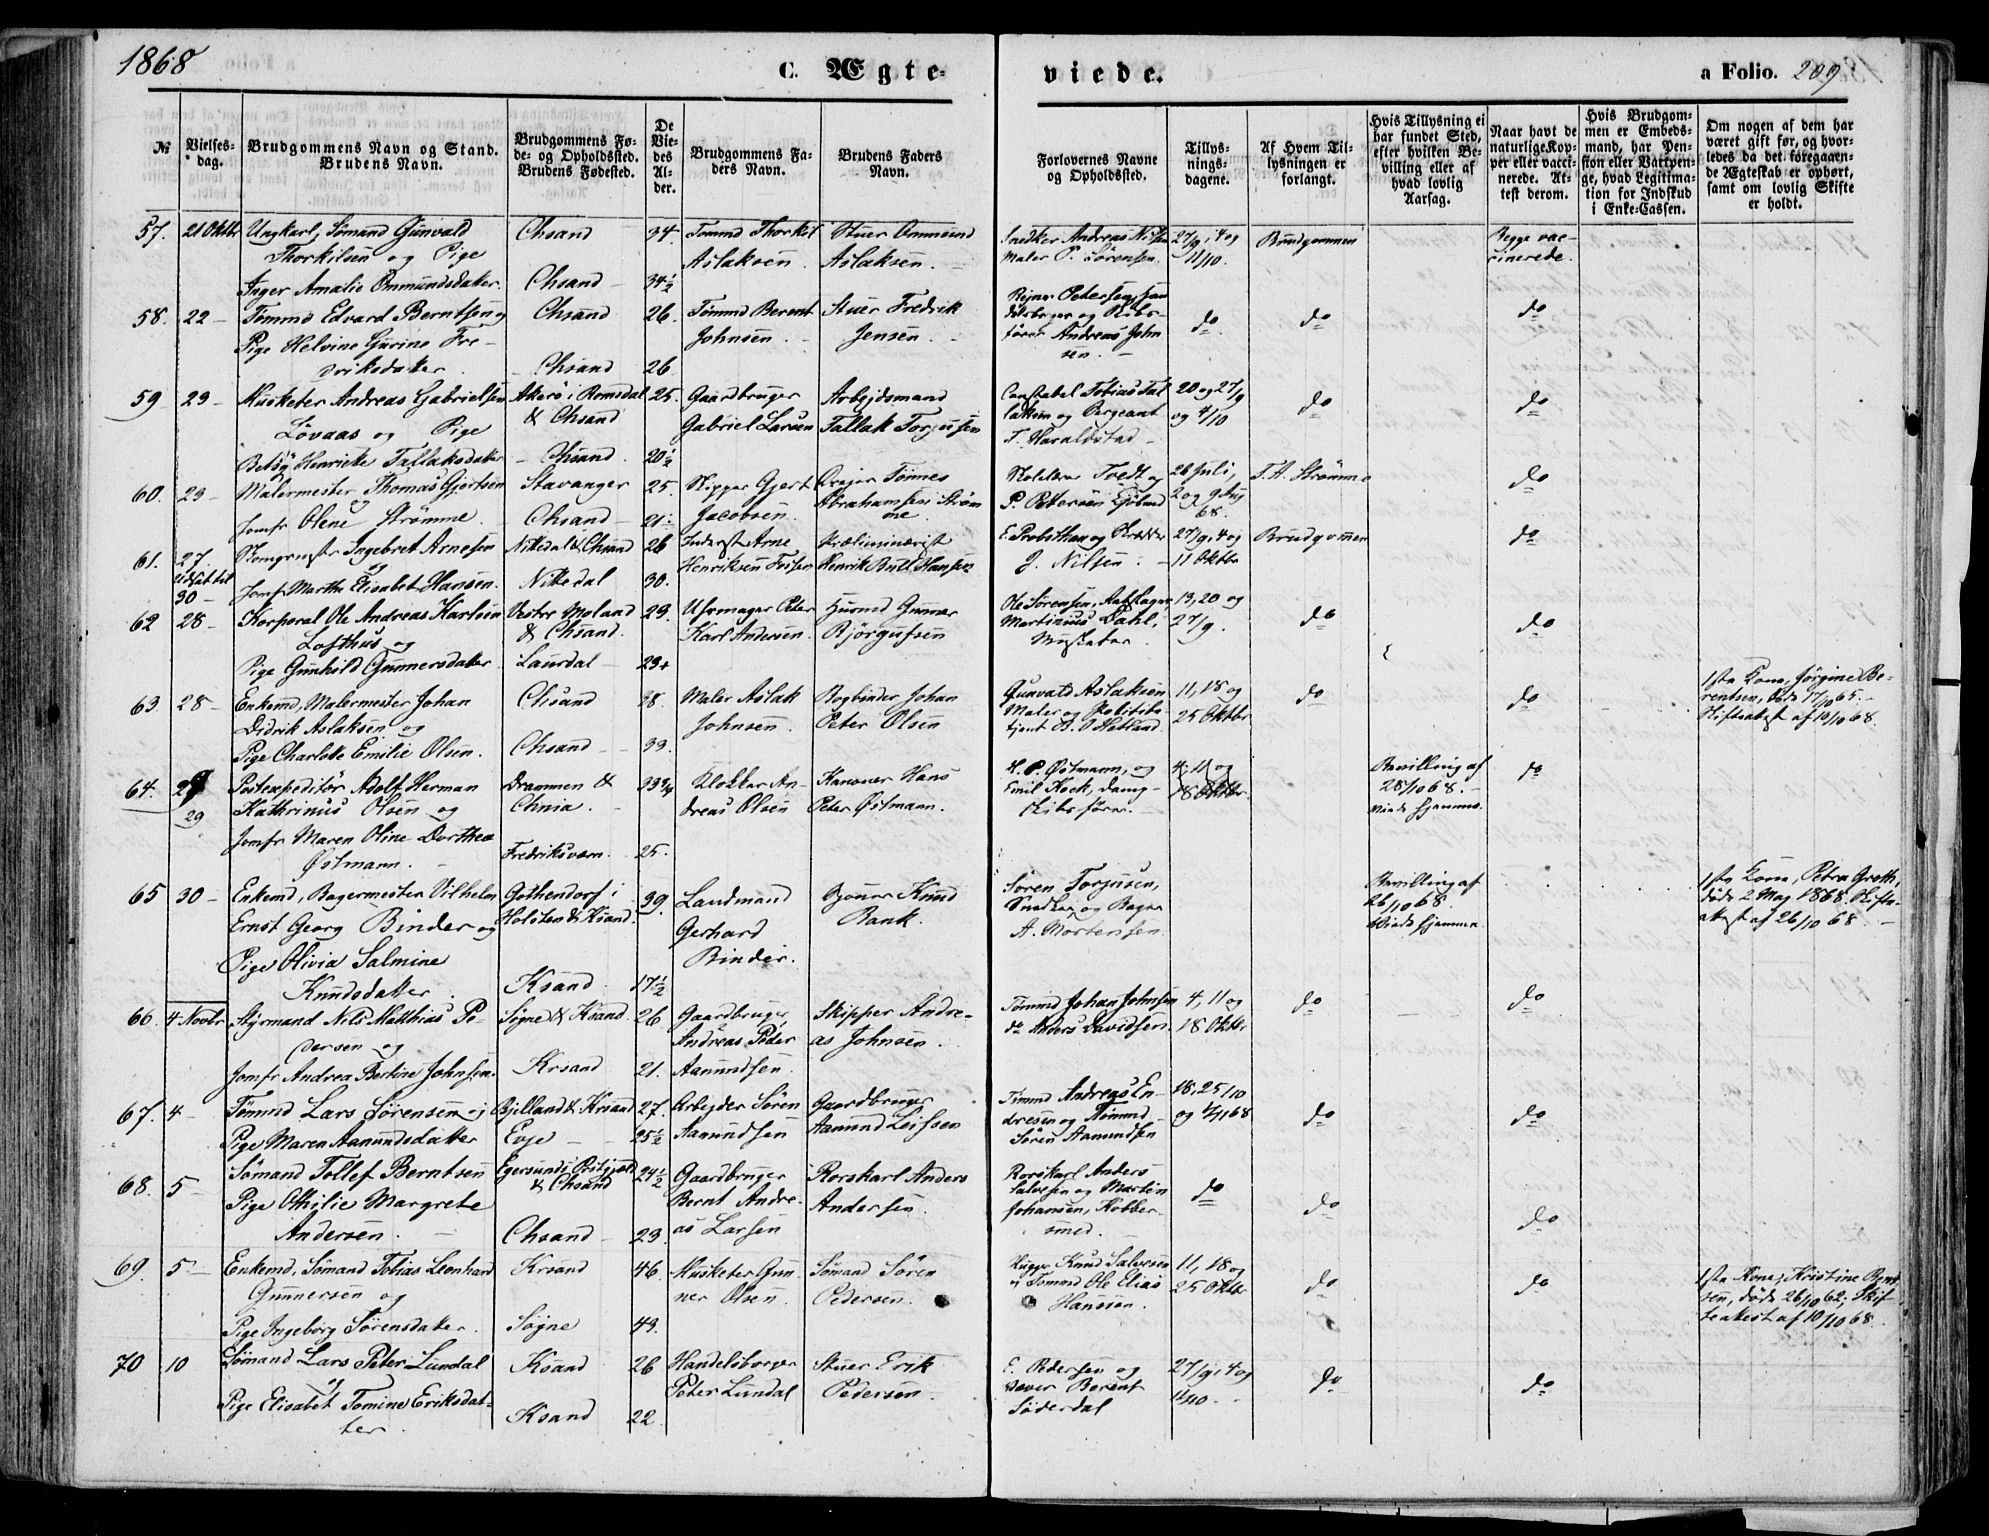 1868
C. Ægte-
viede.
a Folio. 209
№
Vielses-
dag.
Brudgommens Navn og Stand.
Brudens Navn.
Brudgommens Fø-
de- og Opholdssted.
Brudens Fødested.
De
Vie-
des
Al-
der.
Brudgommens Fa-
ders Navn.
Brudens Faders
Navn.
Forlovernes Navne
og Opholdssted.
Tillys-
nings-
dagene.
Af Hvem Til-
lysningen er
forlangt.
Hvis Tillysning ei
har fundet Sted,
efter hvilken Be-
villing eller af
hvad lovlig
Aarsag.
Naar havt de
naturlige Kop-
per eller vacci-
nerede. At-
test derom.
Hvis Brudgom-
men er Embeds-
mand, har Pen-
sion eller Vartpen-
ge, hvad Legitima-
tion for Indskud
i Enke-Cassen.
Om nogen af dem har
været gift før, og hvor-
ledes da det foregaaen-
de Ægteskab er ophørt,
samt om lovlig Skifte
er holdt.
57. 21 Oktbr Ungkarl, Sømand Gunvald
Thorkilsen og Pige
Inger Amalie Ommundsdatter
Chsand
Chsand
34
34½
Tømmd Thorkil
Aslaksen
Stuer Ommund
Aslaksen
Snedker Andreas Nilsen
Maler P. Sørensen
27/9, 4 og
11/10.
Brudgommen
Begge vac-
cinerede.
58. 22 Tømmd Edvard Berntsen og
Pige Helvine Gurine Fre-
driksdatter
Chsand
Chsand
26.
26
Tømmd Berent
Johnsen
Stuer Fredrik
Jensen
Petersen, Han
delsborger og Skibs-
fører Andreas John
sen
do
do
do
59 23 Musketer Andreas Gabrielsen
Løvaas og Pige
Betsy Henriette Tallaksdatter
Akerø i Romsdal
& Chsand
Chsand
25.
20½
Gaardbruger
Gabriel Larsen
Arbejdsmand
Tallak Torjussen
Constabel Tobias Tal
laksen og Sergeant
T. Haraldstad
20 og 27/9
og 4/10
do
do
60. 23 Malermester Thomas Gjertsen
og
Jomfr Olene Strømme
Stavanger
Chsand
25.
21
Skipper Gjert
Jacobsen
Drejer Tønnes
Abrahamsen Strøm
me
Tvedt og
P. Petersen
26 Juli,
2 og 9 Aug
68
T. A. Strømme
do
61. 27
Udsat til
30
Ingebret Arnesen
og
Jomfr Marthe Elisabet Hansen.
Nittedal & Chsand
Nittedal
26
30.
Inderst Arne
Henriksen
Henrik Bull Hansen
E. Probsthan og
J. Nilsen
27/9, 4 og
11 Oktbr
Brudgommen
do
62 28 Korporal Ole Andreas Karlsen
Lofthus og
Pige Gunhild Gunnersdatter
Vester Moland
& Chsand
Laurdal
23.
23
Uhrmager Peter
Karl Andersen
Husmd Gunner
Bjørgufsen
Ole Sørensen,
Martinus Dahl,
Musketer
13, 20 og
27/9.
do
do
63. 28 Enkemd, Malermester Johan
Didrik Aslaksen og
Pige Charlotte Emilie Olsen.
Chsand
Chsand
38.
33.
Maler Aslak
Johnsen
Bogbinder Johan
Peter Olsen
Gunvald Aslaksen
Maler og Politibe-
tjent B. O. Hetland
11, 18 og
25 Oktbr
do
do
1ste Kone, Jørgine Be-
rentsen, døde 17/10 65.
Skifteattest af 10/10 68.
64. 29 Postexpeditør Adolf Herman
Kathrinus Olsen og
Jomfr Maren Oline Dorthea
Østmann
Drammen &
Chnia
Fredriksværn
33¾
25.
Klokker An-
dreas Olsen
Kanoner Hans
Peter Østmann
H. P. Østmann, og
Emil Kock, damp-
skibsfører
4, 11 og
18 Oktbr
Bevilling af
28/10 68.
Viede hjemme
do
65 30 Enkemd, Bagermester Vilhelm
Ernst Georg Binder og
Pige Olivia Salmine
Knudsdatter
Gothendorf i
Holsten & Ksand
Ksand
39.
17½
Landmand
Gerhard
Binder.
Knud
Bank
Søren Torjusen,
Snedker og Bager
A. Mortensen
Bevilling af
26/10 68
Viede hjemme
1ste Kone, Petra Groth,
døde 2 Maj 1868. Skifte-
attest af 26/10 68
66. 4 Novbr Styrmand Nils Matthias Pe-
dersen og
Jomfr Andrea Bertine Johnsen.
Søgne & Ksand
Krsand
26
21.
Gaardbruger
Andreas Peder
Aanundsen
Skipper Andre-
as Johnsen
Tømmd Johan Johnsen
do Anders Davidsen
4, 11 og
18 Oktbr
do
do
67. 4 Tømmd Lars Sørensen og
Pige Maren Aanundsdatter
Bjelland & Krsand
Evje
27.
25½
Arbejder Søren
Aanundsen
Gaardbruger
Aanund Leifsen
Tømmd Andreas En-
dresen og Tømmd
Søren Aanundsen
18, 25/10
og 1/11 68
do
do
68. 5 Sømand Tollef Berntsen
Pige Othilie Margrete
Andersen
Egersunds
& Chsand
Chsand
24½
23.
Gaardbruger
Bernt Andre-
as Larsen
Rorskarl Anders
Andersen
Rorskarl Anders
Salvesen og Martin
Johansen, Kobber-
smed
do
do
do
69. 5 Enkemd, Sømand Tobias Leonhard
Gunnersen og
Pige Ingeborg Sørensdatter
Krsand
Søgne
46.
43.
Musketer Gun-
ner Olsen
Sømand Søren
Pedersen
Knud Salvesen
og Tømmd Ole Elias
Hansen
11, 18 og
25 Oktbr
do
do
1ste Kone, Kristine Bent
sen, døde 26/10 62; Skif-
teattest af 10/10 68
70 10 Sømand Lars Peter Lundal
og
Pige Elisabet Tomine Eriksdat-
ter
Ksand
Ksand
26
22
Handelsborger
Peter Lundal
Stuer Erik
Pedersen
E. Pedersen og
Væver Berent
Søderdal
27/9, 4 og
11/10
do
do